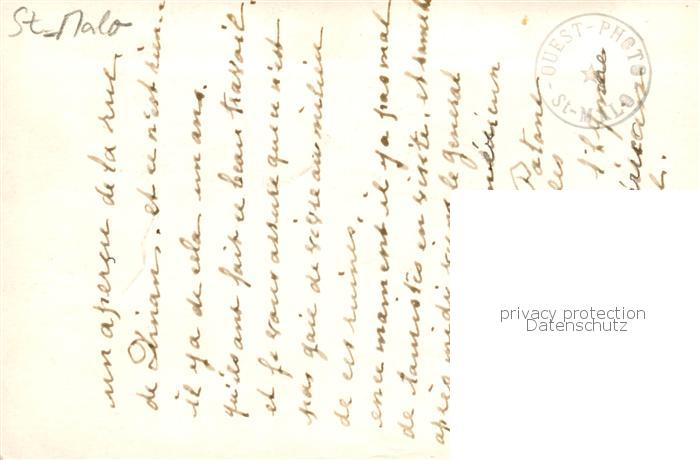 St-Malo
OUEST-PHOTO
St-MALO
un aperçu de la rue
de Dinan. et ce n'est rien.
il y a de cela un ans.
qu'ils ont fait ce beau travail.
et je vous assure que ce n'est
pas gaie de vivre au milieu
de ces ruines.
en ce moment il y a pas mal
de touristes en visite, et
après midi le général
privacy protection
Datenschutz